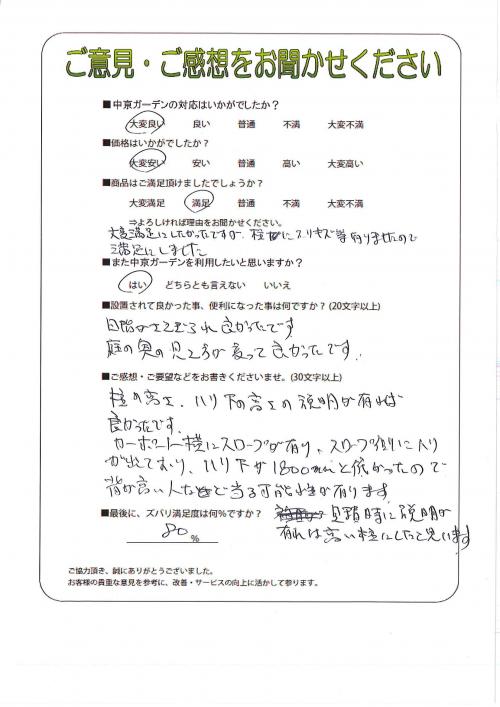 ご意見・ご感想をお聞かせください
■中京ガーデンの対応はいかがでしたか?
大変良い 良い 普通 不満 大変不満
■価格はいかがでしたか?
大変安い 安い 普通 高い 大変高い
■商品はご満足頂けましたでしょうか?
大変満足 満足 普通 不満 大変不満
⇒よろしければ理由をお聞かせください。
大変満足にしたかったですが 柱 にスリキズ等有りましたので
満足にしました
■また中京ガーデンを利用したいと思いますか?
はい どちらとも言えない いいえ
■設置されて良かった事、便利になった事は何ですか?(20文字以上)
目隠が 良かったです
庭の奥の見え方が変って良かったです.
■ご感想・ご要望などをお書きくださいませ。(30文字以上)
柱の高さ、ハリ下の高さの説明が有れば
良かったです.
カーポート横にスロープが有り、スロープ側にハリ
が出ており、ハリ下が1800mmと低かったので
背が高い人など当る可能性が有ります
■最後に、ズバリ満足度は何%ですか?
見積時に説明が
80 %
有れば高い柱にしたと思います
ご協力頂き、誠にありがとうございました。
お客様の貴重な意見を参考に、改善・サービスの向上に活かして参ります。